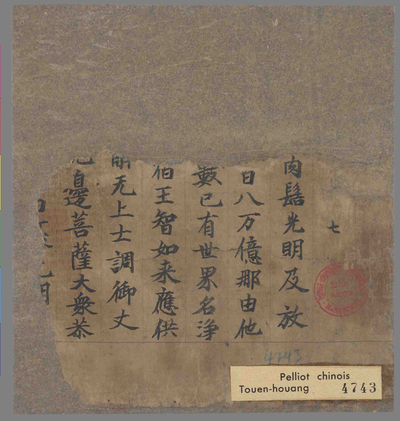 七
肉髻光明及放
百八万億那由他
數已有世界名淨
宿王智如来應供
解无上士調御丈
邊菩薩大衆恭
4743
Pelliot chinois
Touen-houang 4743